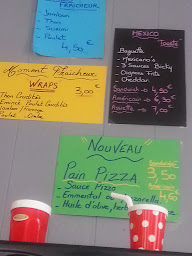 FRAÎCHEUR
Jambon
Thon
Surimi
Poulet
4,50 €
MEXICO
Toasté
Baguette
Mexicano's
3 Sauces Bicky
Oignons Frits
Cheddar
Sandwich → 4,50 €
Américain → 4,50 €
→ 7,00 €
Moment Fraîcheur
WRAPS
3,00 €
Thon Crudités
Emincé Poulet Crudités
Jambon/Fromage
Poulet
NOUVEAU
Pain PIZZA
3,50
- Sauce Pizza
- Emmental
- Huile d'olive,